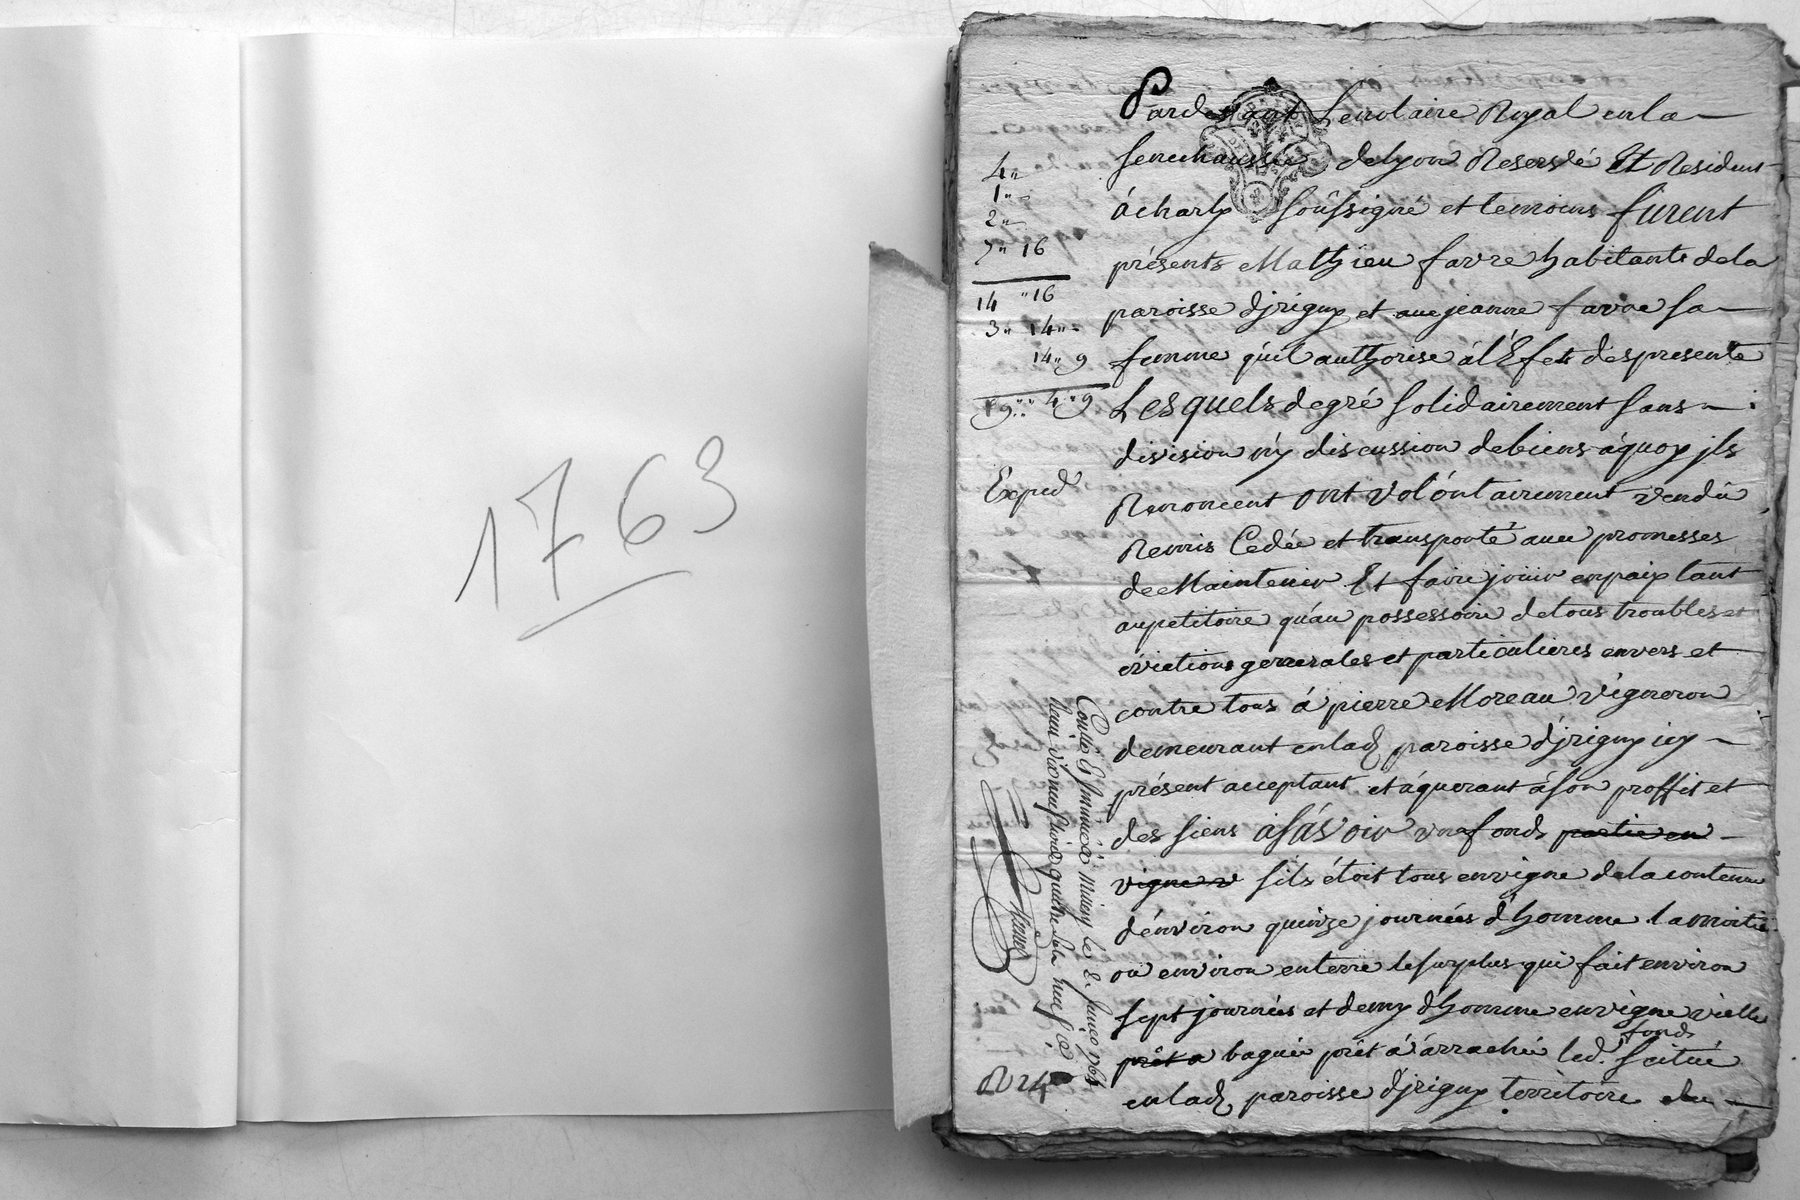 1763
Pardevant Le notaire Royal en la
senechaussée de Lyon Reservé Et Resident
à charly soussigné et temoins furent
présents Mathieu favre habitants de la
paroisse d'jrigny et jeanne favre sa
femme qu'il authorise à l'Efet des presente
Lesquels de gré solidairement sans
division n'y discussion de biens à quoy jls
Renoncent ont volontairement vendu
Remis Cedée et transporté avec promesses
de Maintenir Et faire jouir en paix tant
au petitoire qu'au possessoire de tous troubles et
évictions generales et particulieres envers et
contre tous à pierre Moreau vigneron
demeurant en lad paroisse d'jrigny icy
présent acceptant et áquerant à son proffit et
des siens àsávoir un fonds partie en
vigne sils étoit tous en vigne de la contenue
d'environ quinze journées d'homme la moitié
ou environ en terre le surplus qui fait environ
sept journées et demy d'homme en vigne vielle
fonds
prêt a baguée prêt à árraché led. scitué
en lad paroisse d'jrigny territoire du
4"
1"
2"
7" 16
14 "16
3" 14"
14" 9
19" 4" 9
Exped
R 24